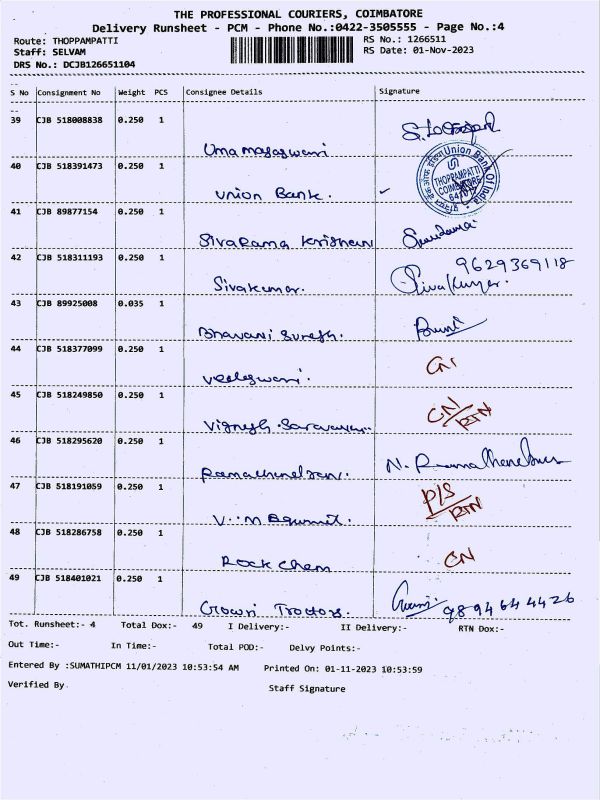 THE PROFESSIONAL COURIERS, COIMBATORE
Delivery Runsheet - PCM - Phone No.:0422-3505555 - Page No.:4
Route: THOPPAMPATTI
RS No.: 1266511
Staff: SELVAM
RS Date: 01-Nov-2023
DRS No.: DCJB126651104
S No Consignment No Weight PCS Consignee Details Signature
39 CJB 518008838 0.250 1
Uma magaswari
40 CJB 518391473 0.250 1
Union Bank.
Union Bank Of India
THOPPAMPATTI
COIMBATORE
41 CJB 89877154 0.250 1
SivaRama Krishnan
42 CJB 518311193 0.250 1
9629369118
Sivakumar. Sivakumar.
43 CJB 89925008 0.035 1
Bhavani Suresh.
44 CJB 518377099 0.250 1
CN
45 CJB 518249850 0.250 1
CN/RTN
Vignesh. Saravanan.
46 CJB 518295620 0.250 1
Ramachandran.
47 CJB 518191059 0.250 1
D/S
RTN
48 CJB 518286758 0.250 1
CN
Rock Chem
49 CJB 518401021 0.250 1
Gowri Tractors. 9894644426
Tot. Runsheet:- 4 Total Dox:- 49 I Delivery:- II Delivery:- RTN Dox:-
Out Time:- In Time:- Total POD:- Delvy Points:-
Entered By :SUMATHIPCM 11/01/2023 10:53:54 AM Printed On: 01-11-2023 10:53:59
Verified By Staff Signature